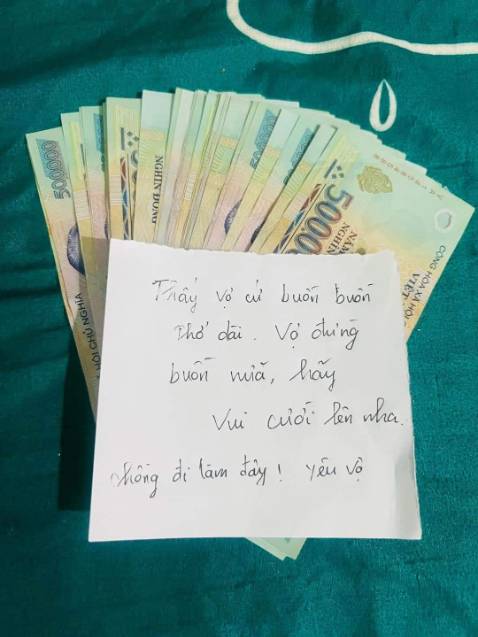 500000
NGHÌN ĐỒNG
50000
NĂM
NGHÌN
CỘNG HÒA XÃ HỘI
VIỆT
HỘI CHỦ NGHĨA
Thấy vợ cứ buồn buồn
thở dài. Vợ đừng
buồn nữa, hãy
Vui cười lên nha.
chồng đi làm đây! yêu vợ